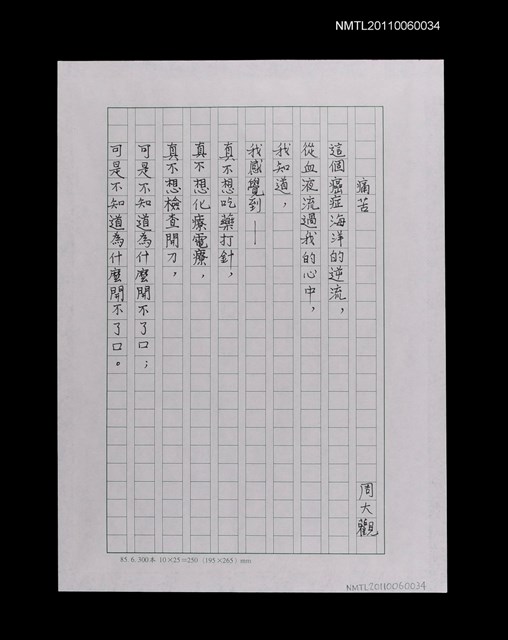 NMTL20110060034
痛苦
周大觀
這個癌症海洋的逆流，
從血液流過我的心中，
我知道，
我感覺到——
真不想吃藥打針，
真不想化療電療，
真不想檢查開刀，
可是不知道為什麼開不了口；
可是不知道為什麼開不了口。
85. 6. 300本 10×25=250 (195×265) mm
NMTL20110060034